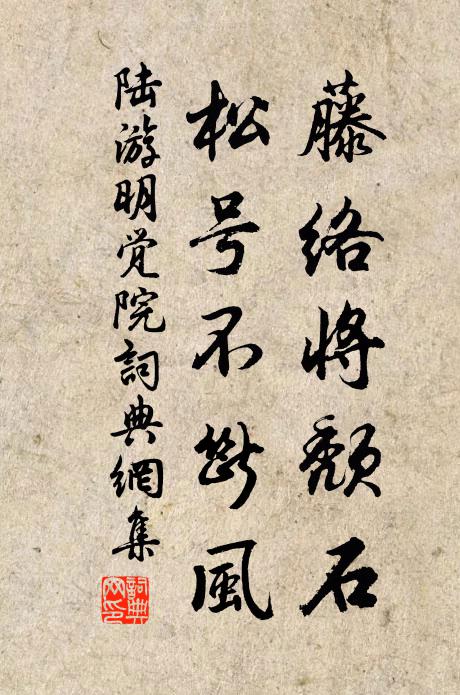 藤络将颓石
松号不断風
陆游明觉院詞典網集
詞典